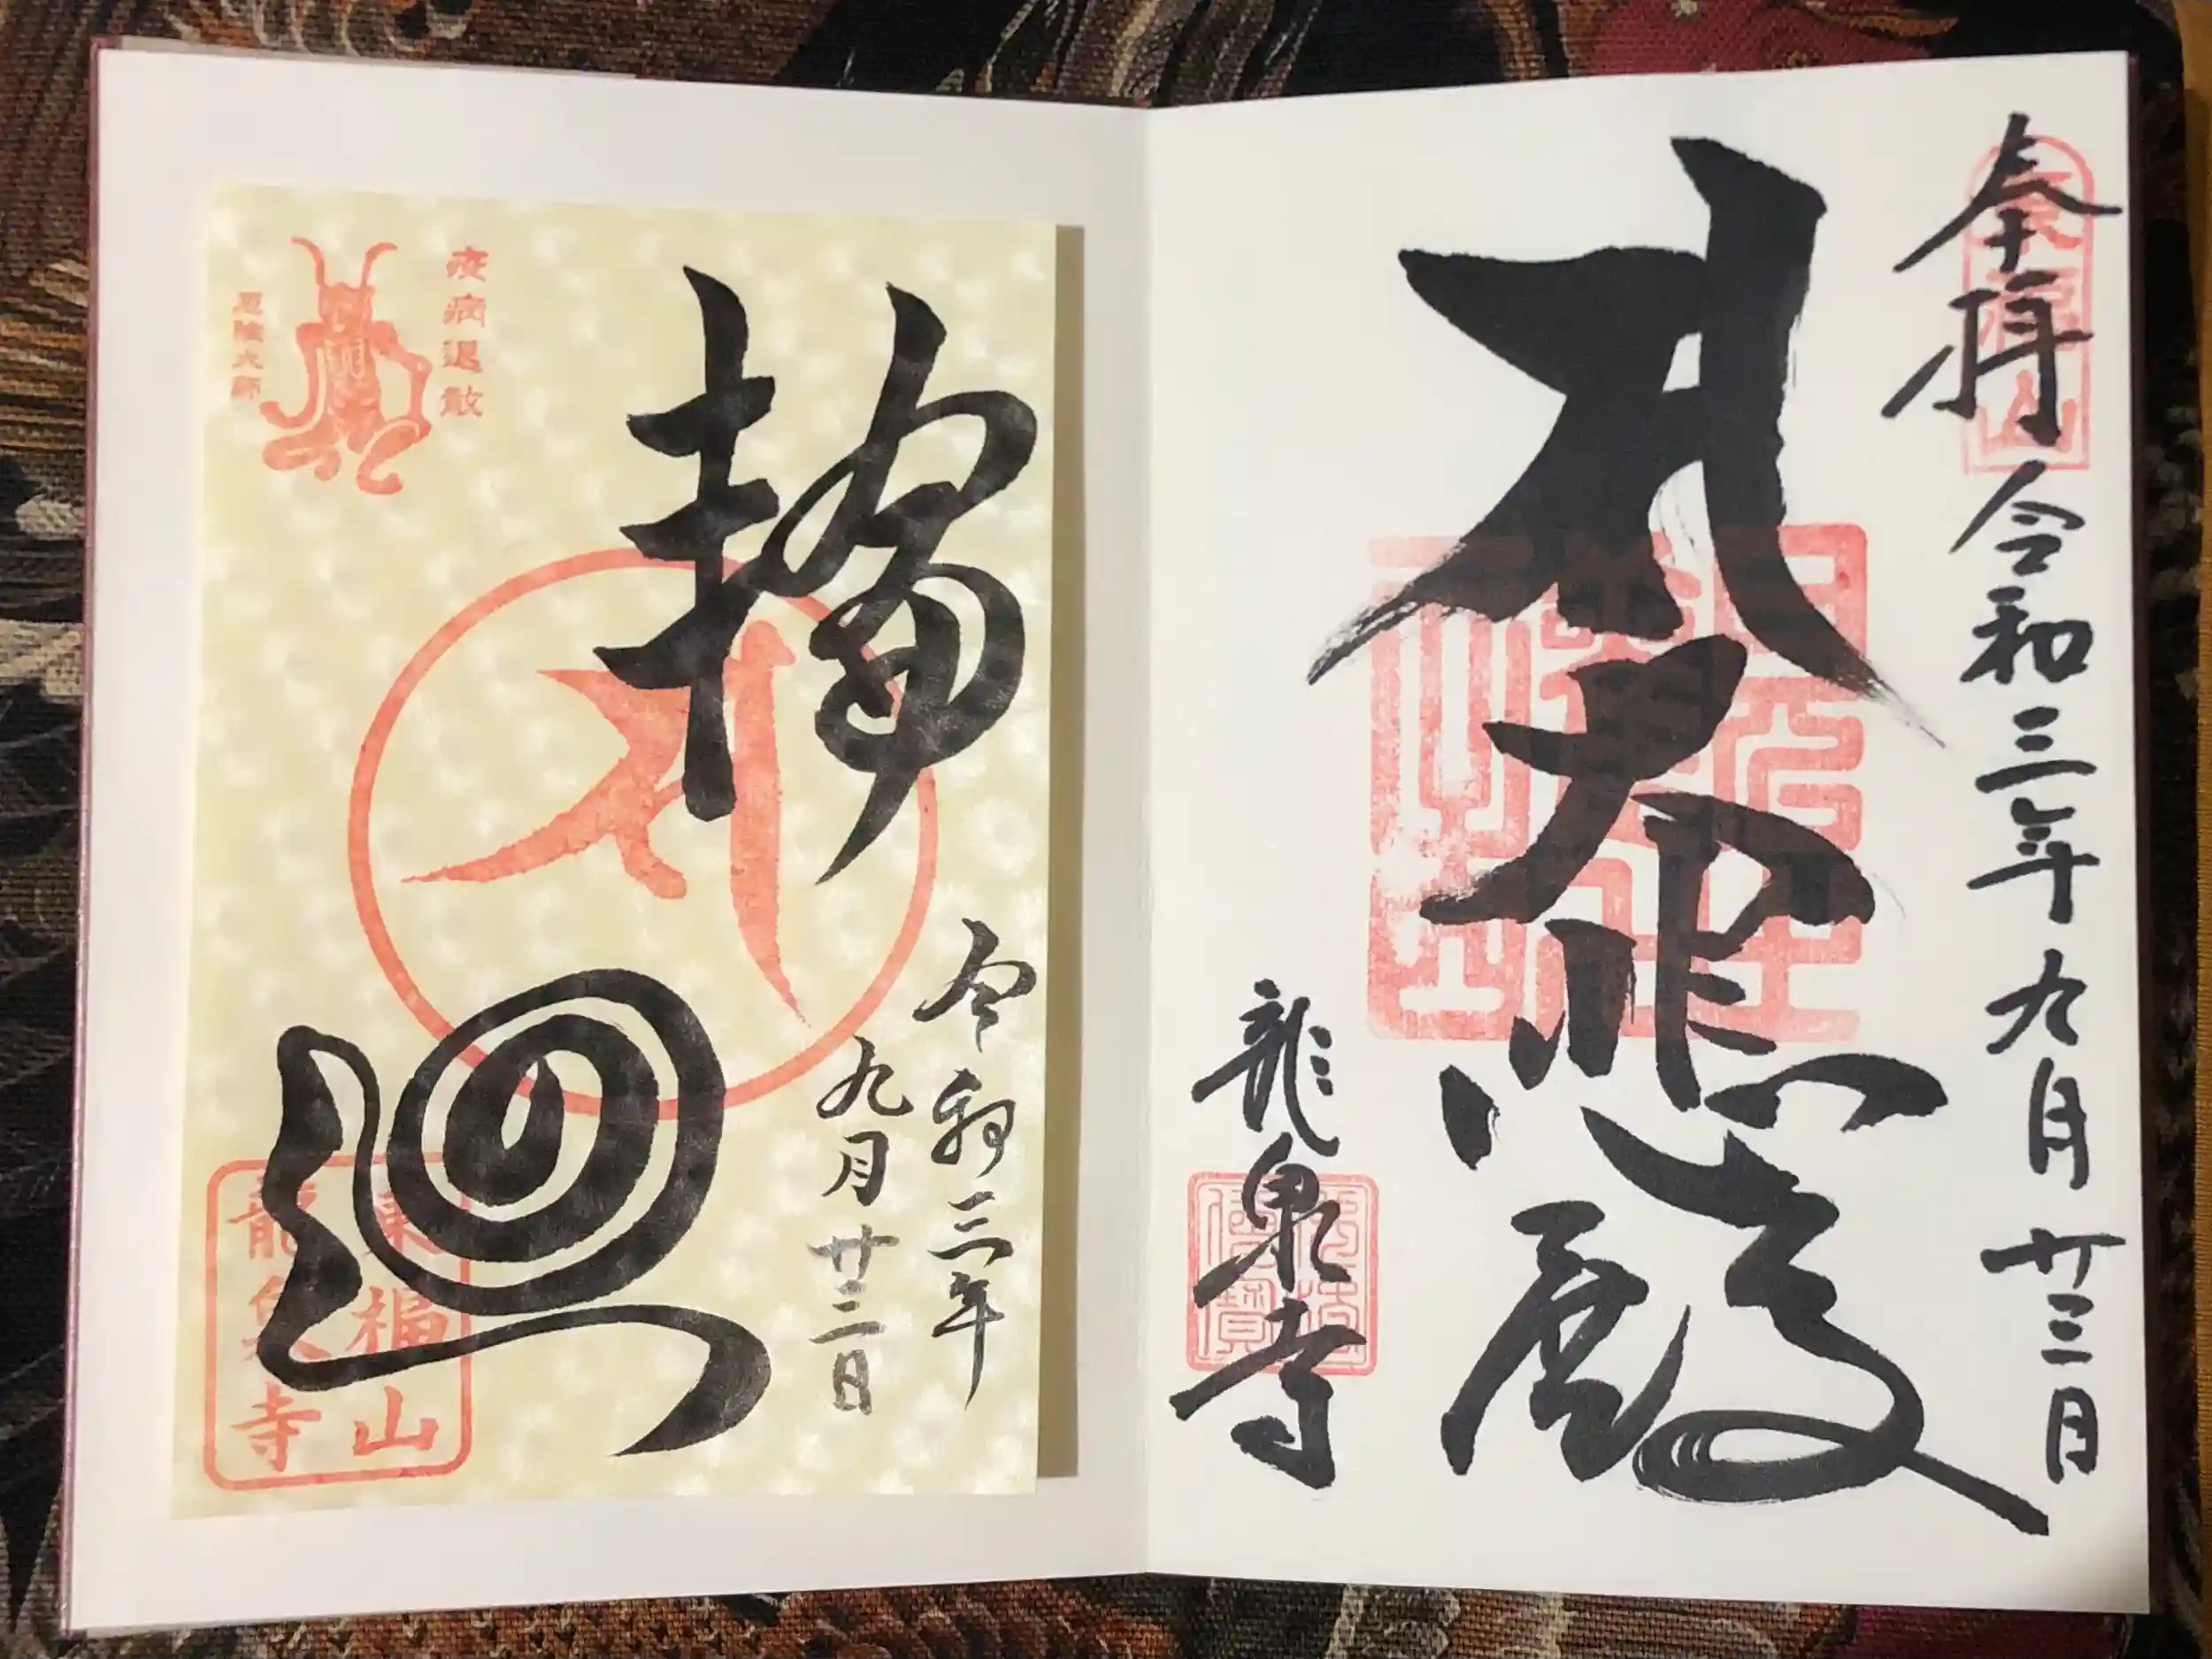 奉拝
令和三年九月廿三日
大悲殿
龍泉寺
疫病退散
輪廻
令和三年
九月廿三日
東福山
龍泉寺